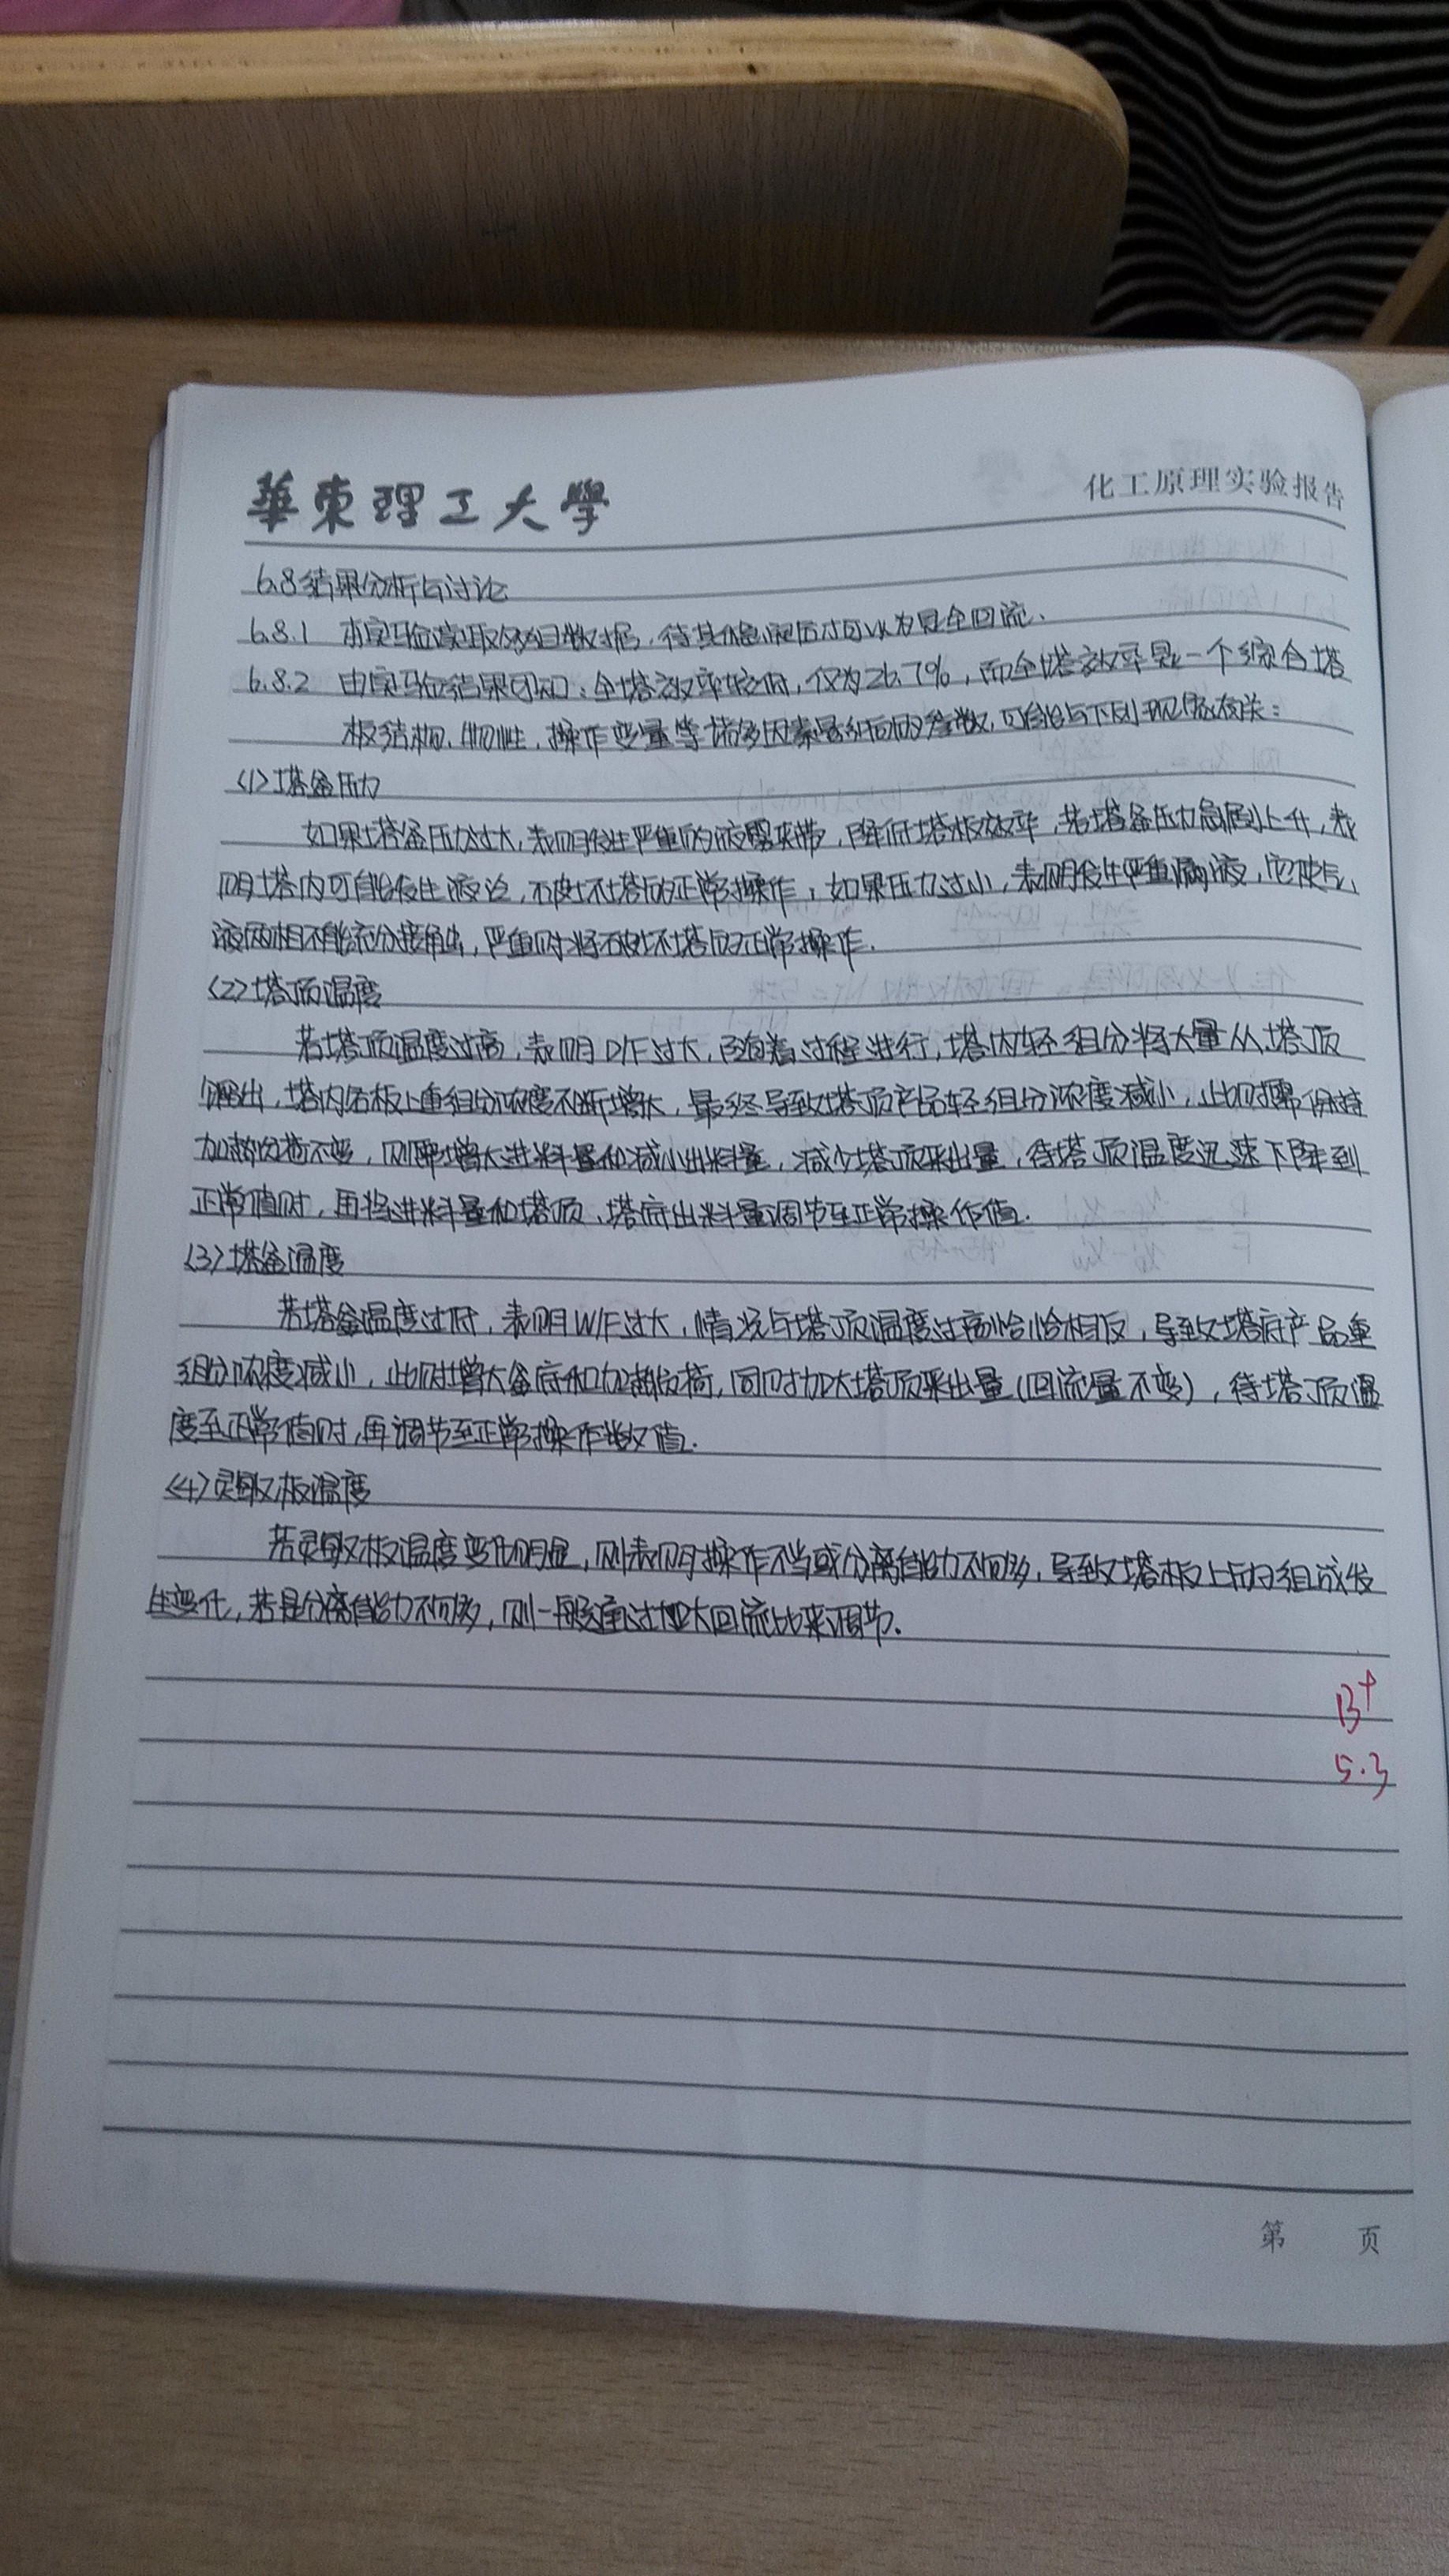 華東理工大學
化工原理实验报告
6.8 结果分析与讨论
6.8.1 本实验读取多组数据,待其稳定后才可认为是全回流.
6.8.2 由实验结果可知:全塔效率较低,仅为26.7%,而全塔效率是一个综合塔
板结构、物性、操作变量等诸多因素影响的参数,可能与下列现象有关:
(1)塔釜压力
如果塔釜压力过大,表明发生严重的液雾夹带,降低塔板效率,若塔釜压力急剧上升,表
明塔内可能发生液泛,破坏塔的正常操作;如果压力过小,表明发生严重漏液,它使气、
液两相不能充分接触,严重时将破坏塔的正常操作.
(2)塔顶温度
若塔顶温度过高,表明D/F过大,随着过程进行,塔内轻组分将大量从塔顶
馏出,塔内各板上重组分浓度不断增大,最终导致塔顶产品轻组分浓度减小,此时需保持
加热负荷不变,则需增大进料量和减小出料量,减少塔顶采出量,待塔顶温度迅速下降到
正常值时,再将进料量和塔顶、塔底出料量调节至正常操作值.
(3)塔釜温度
若塔釜温度过低,表明W/F过大,情况与塔顶温度过高恰恰相反,导致塔底产品重
组分浓度减小,此时增大釜底和加热负荷,同时加大塔顶采出量(回流量不变),待塔顶温
度至正常值时,再调节至正常操作数值.
(4)灵敏板温度
若灵敏板温度变化明显,则表明操作不当或分离能力不够,导致塔板上的组成发
生变化,若是分离能力不够,则一般通过加大回流比来调节.
B+
5.3
第 页